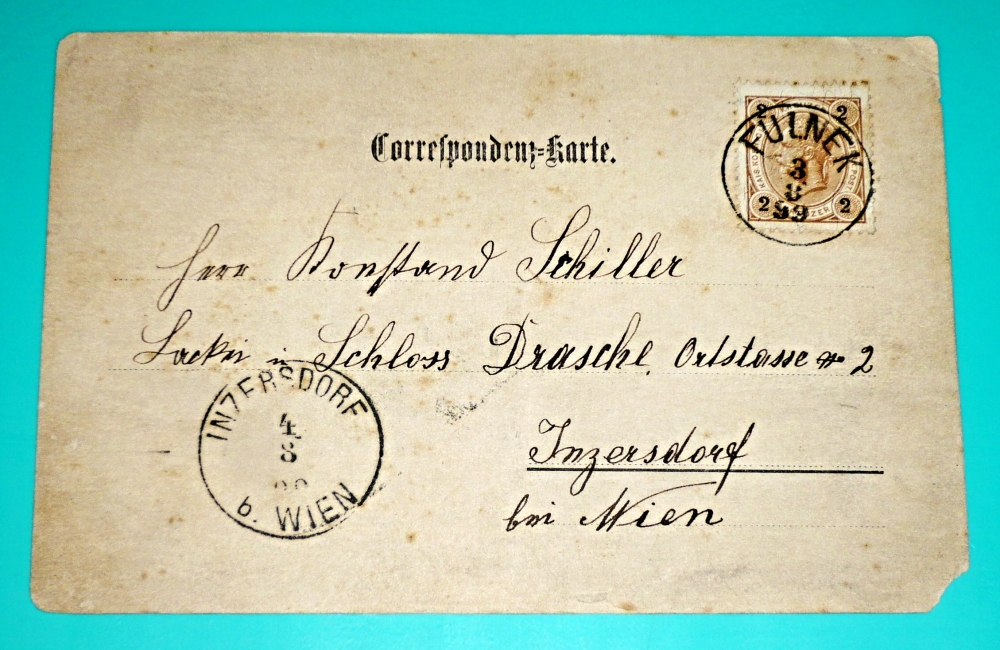 Correspondenz-Karte.
2 2
KAIS. KÖ POST.
2 ZER 2
FULNEK
3
8
99
Herr Konstand Schiller
Lackei in Schloss Drasche, Ortstasse # 2
INZERSDORF
4
8
b. WIEN
Inzersdorf
bei Wien